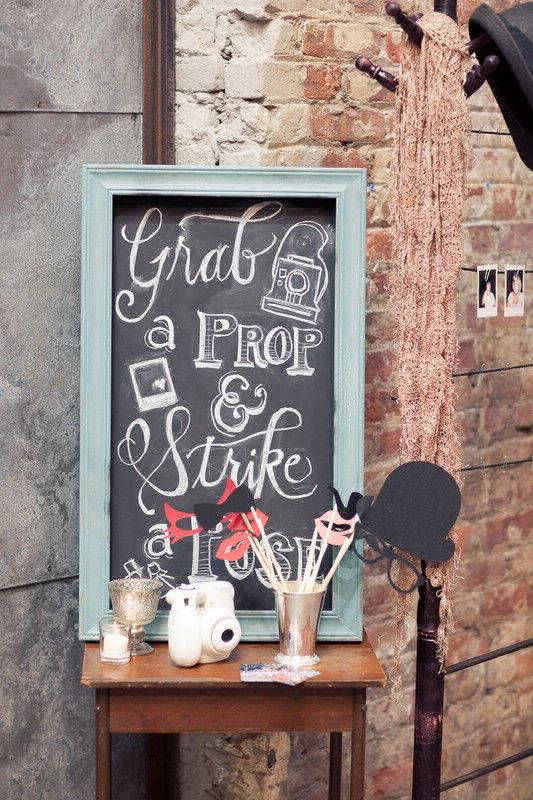 Grab
a PROP
&
Strike
a POSE